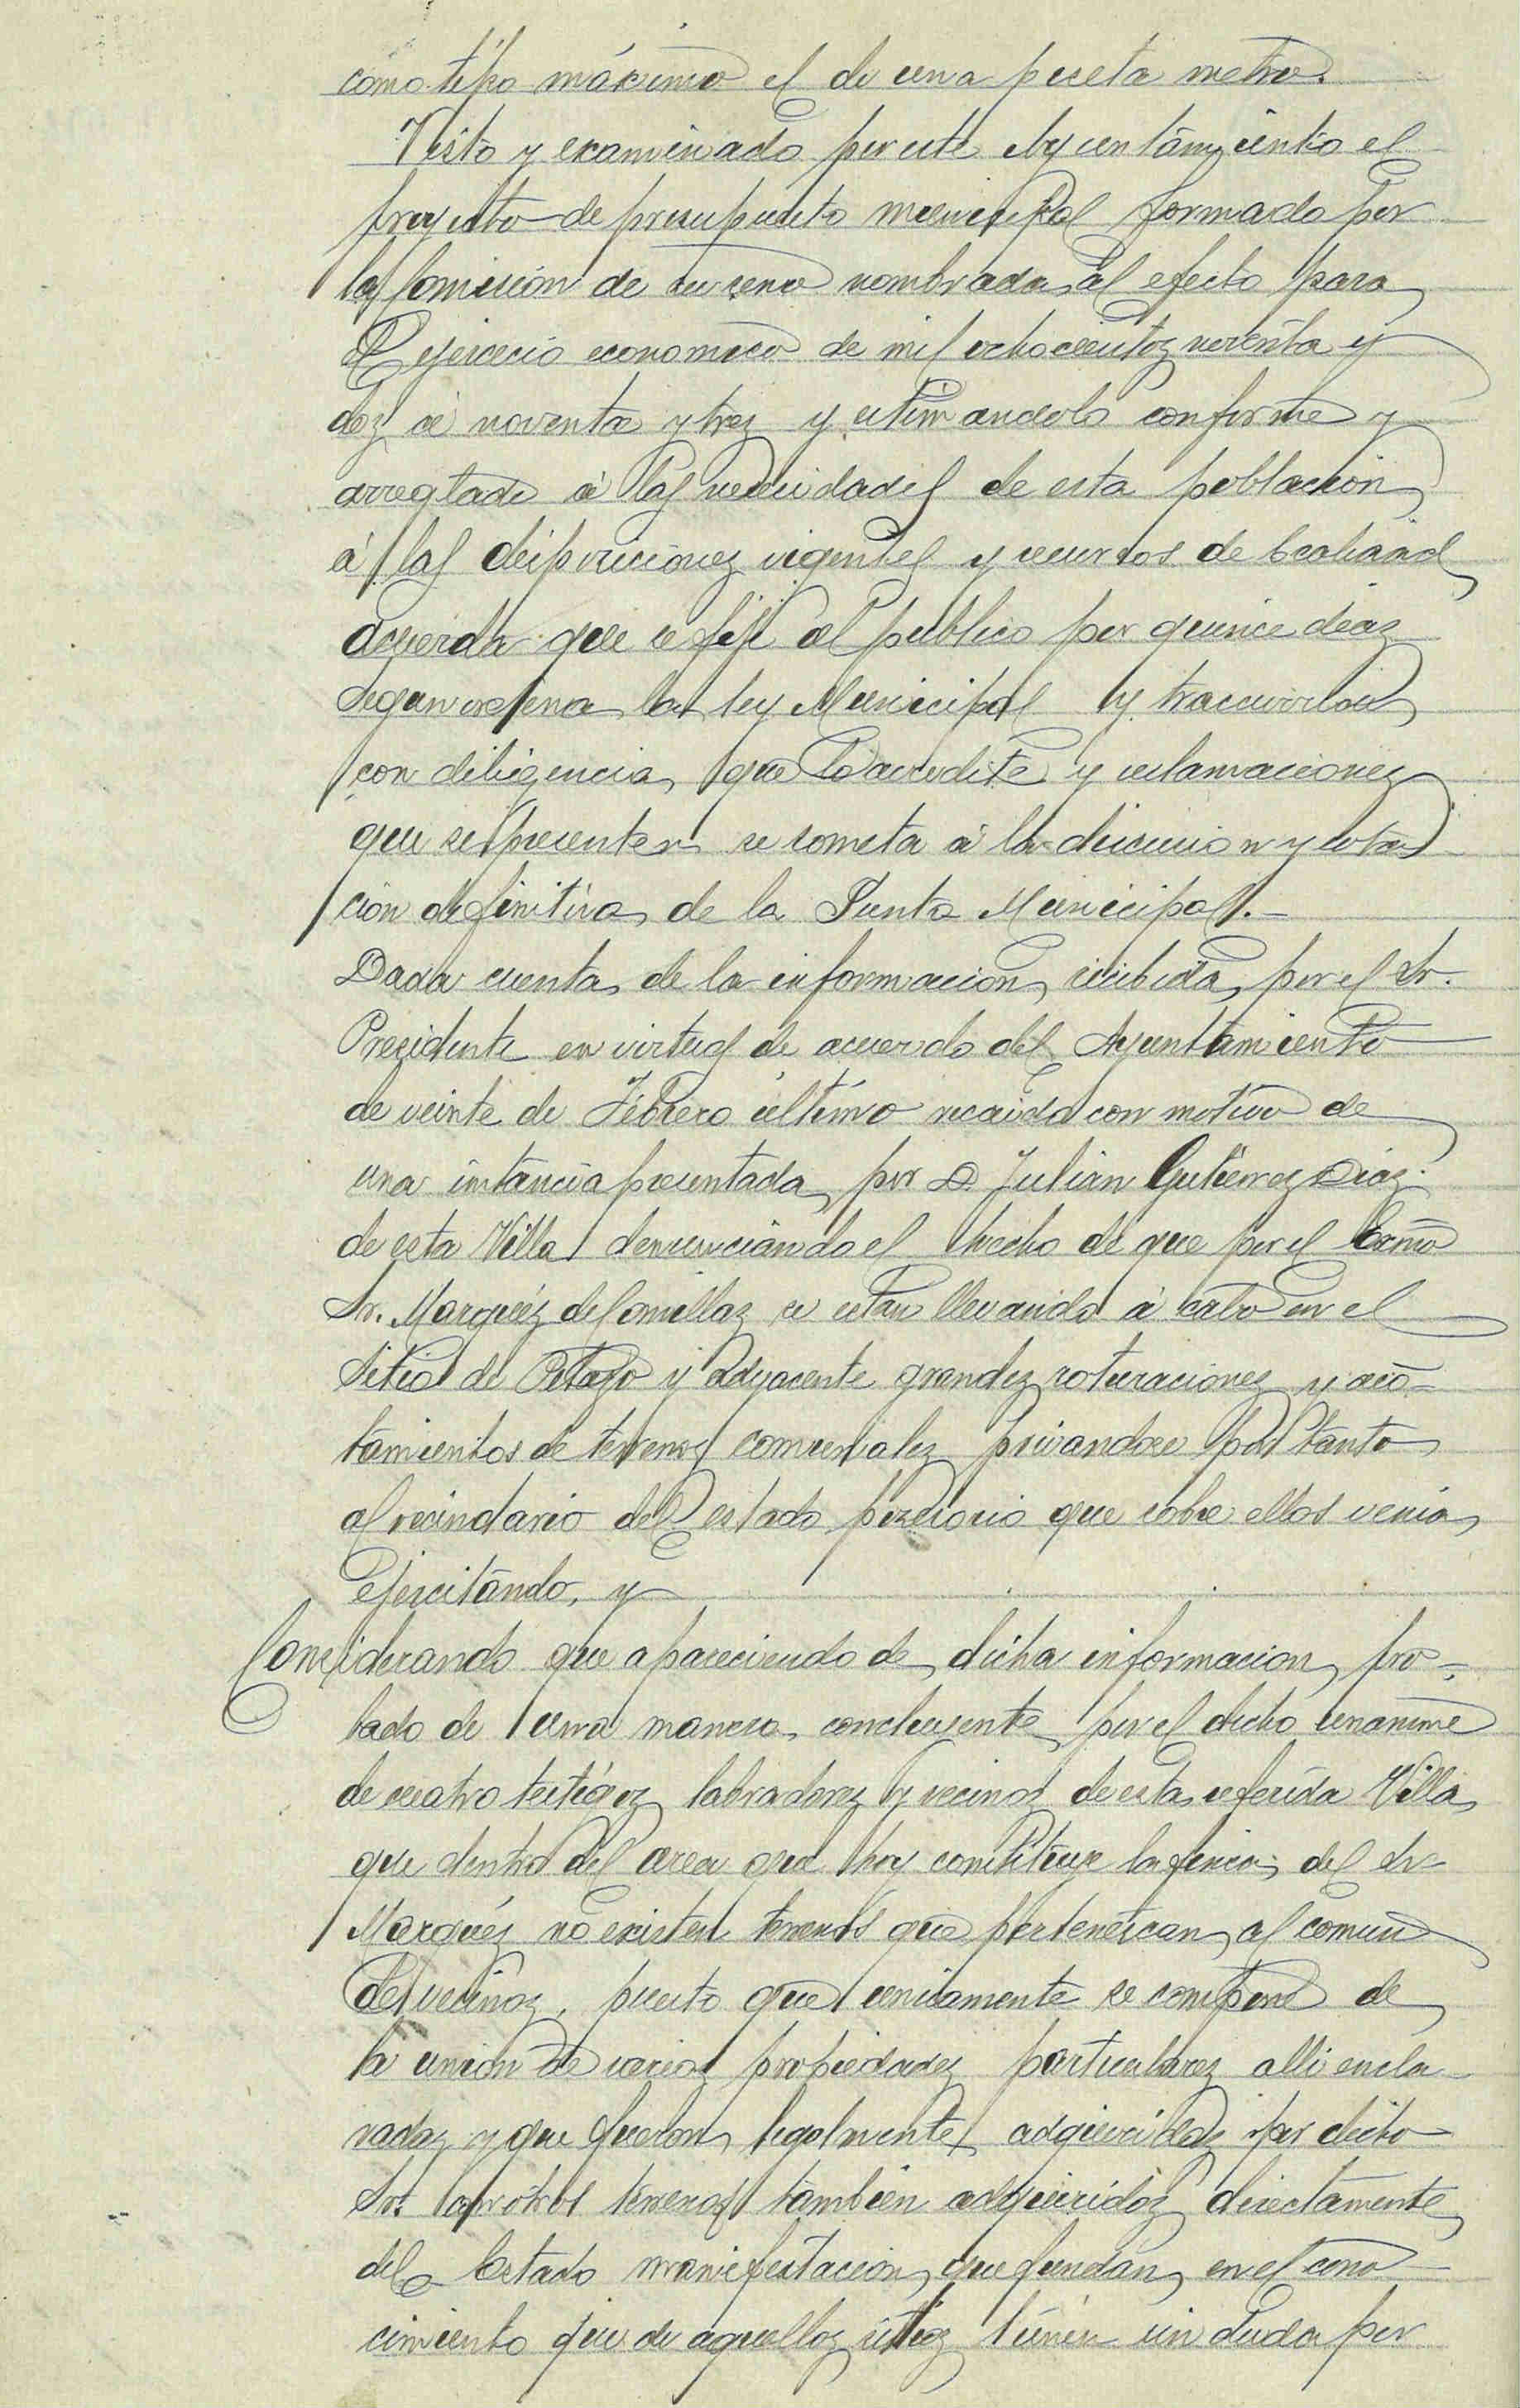 como tipo máximo el de una peseta metro.
Visto y examinado por este Ayuntamiento el
proyecto de presupuesto municipal formado por
la Comisión de su seno nombrada al efecto para
el ejercicio economico de mil ochocientos noventa y
dos á noventa y tres y estimandolo conforme y
arreglado á las necesidades de esta población
á las disposiciones vigentes y recursos de localidad
acuerda que se fije al publico por quince dias
segun ordena la ley Municipal y trascurridos
con diligencia que lo acredite y reclamaciones
que se presenten se someta á la discusion y vota
ción definitiva de la Junta Municipal.
Dada cuenta de la informacion recibida por el Sr.
Presidente en virtud de acuerdo del Ayuntamiento
de veinte de Febrero último recaido con motivo de
una instancia presentada por D. Julián Gutierrez Diaz
de esta Villa denunciando el hecho de que por el Excmo
Sr. Marquéz de Comillas se estan llevando á cabo en el
Sitio de y adyacente grandes roturaciones y aco-
tamientos de terrenos comunales privandose por tanto
al vecindario del estado posesorio que sobre ellos venia
ejercitando, y
Considerando que apareciendo de dicha informacion pro-
bado de una manera concluyente por el dicho unanime
de cuatro testigos labradores y vecinos de esta referida Villa
que dentro del area que hoy constituye la finca del Sr
Marqués no existen terrenos que pertenezcan al comun
de vecinos, puesto que unicamente se compone de
la union de varias propiedades particulares alli encla-
vadas y que fueron legalmente adquiridas por dicho
Sr. otros terrenos tambien adquiridos directamente
del Estado manifestacion que fundan en el cono-
cimiento que de aquellos sitios tienen sin duda por